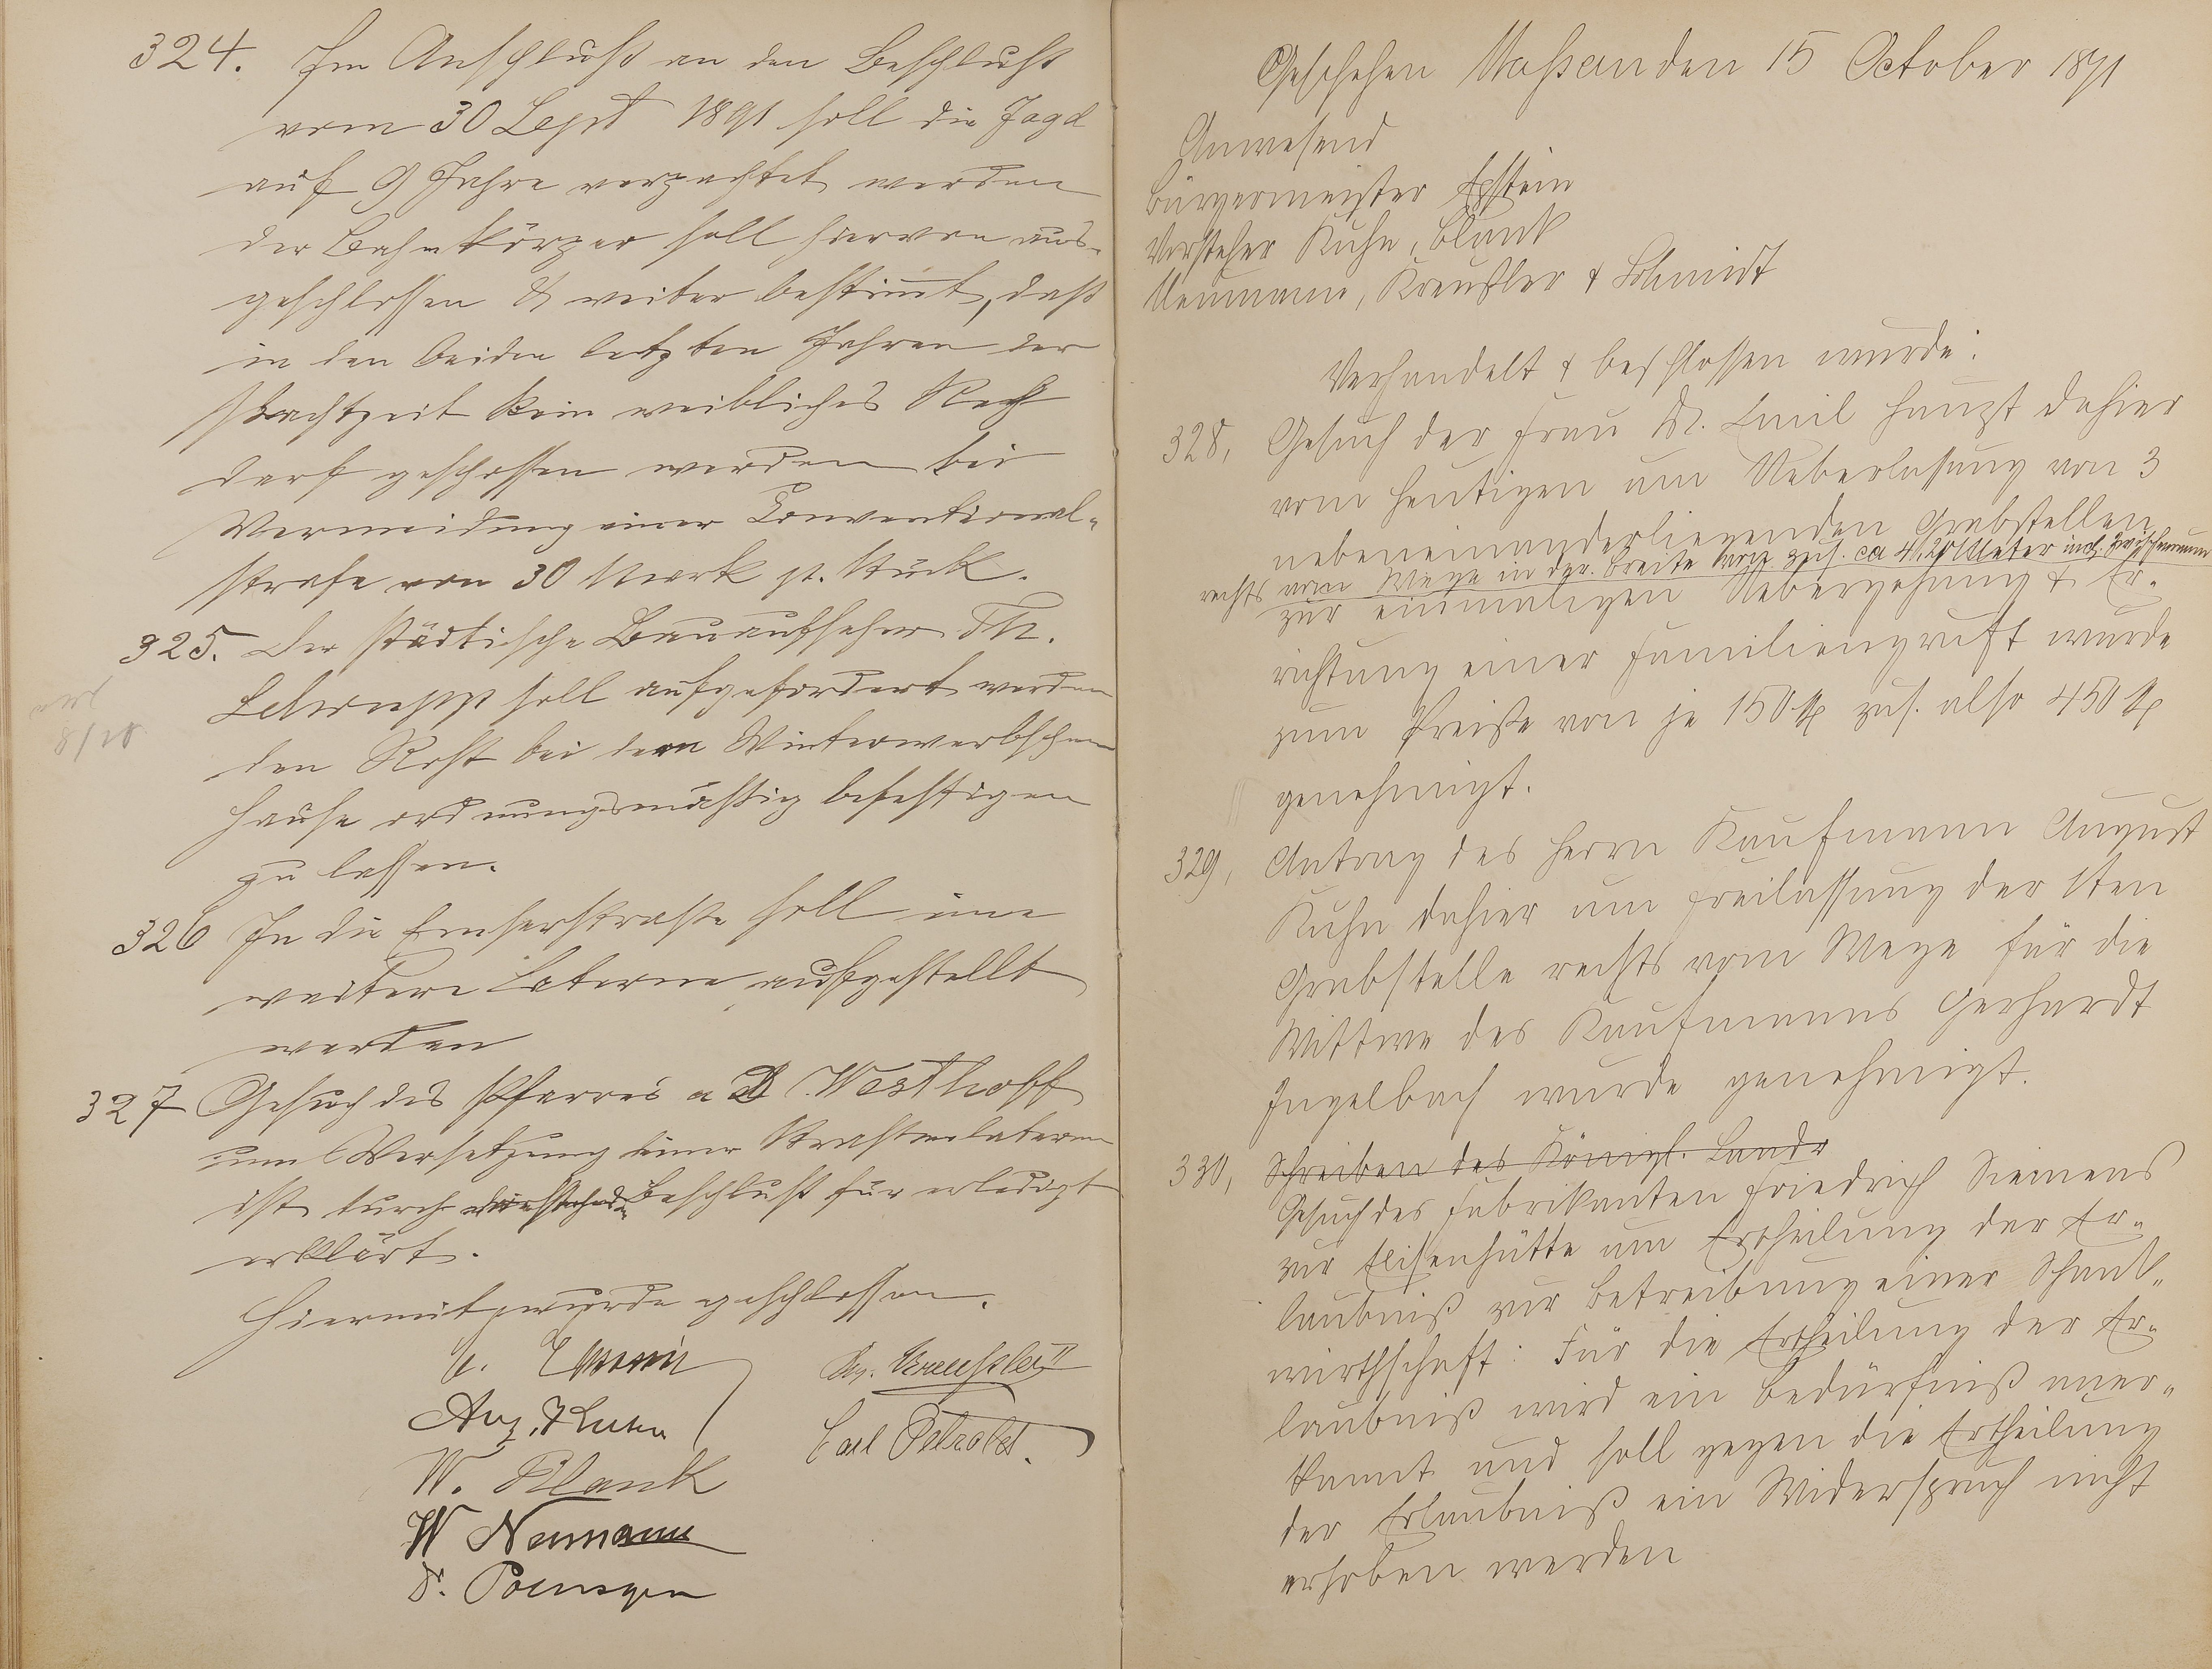 324. Im Anschluß an den Beschluß
vom 30 Sept 1891 soll die Jagd
auf 9 Jahre verpachtet werden
der Bahnkörper soll hiervon aus-
geschlossen & weiter bestimmt, daß
in den beiden letzten Jahren der
Pachtzeit kein weibliches Reh
darf geschossen werden bei
Vermeidung einer Conventional-
strafe von 30 Mark pr. Stück.
325. Der städtische Bauaufseher Th.
soll aufgefordert werden
den Rost bei dem
Hause ordnungsmäßig befestigen
zu lassen.
8/10
326 In die Emserstraße soll eine
weitere Laterne aufgestellt
werden
327 Gesuch des Pfarres a D. Westhoff
um Versetzung einer Straßenlaterne
ist durch Beschluß für erledigt
erklärt.
Hiermit wurde geschlossen.
Aug. Kuhn
W. Blank
W Neumann
D. Poensgen
Kreußler II
Carl Petzoldt.
Geschehen Nassau den 15 October 1891
Anwesend
Bürgermeister Epstein
Vorsteher Kuhn, Blank
Neumann, Kreußler & Schmidt
Verhandelt & beschlossen wurde:
328, Gesuch der Frau Dr. Emil Haupt dahier
vom heutigen um Ueberlassung von 3
nebeneinanderliegenden Grabstellen
rechts vom Wege in der Breite von zus. ca 4,25 Meter incl. Zwischenraum
zur einmaligen Uebergehung & Er-
richtung einer Familiengruft wurde
zum Preiße von je 150 M zus. also 450 M
genehmigt.
329, Antrag des Herrn Kaufmann August
Kuhn dahier um Freilassung der 1ten
Grabstelle rechts vom Wege für die
Wittwe des Kaufmanns Gerhardt
Ingelbach wurde genehmigt.
330, Schreiben des Königl. Landr
Gesuch des Fabrikanten Friedrich Siemens
zur Elisenhütte um Ertheilung der Er-
laubniß zur Betreibung einer Schank-
wirthschaft: Für die Ertheilung der Er-
laubniß wird ein Bedürfniß aner-
kannt und soll gegen die Ertheilung
der Erlaubniß ein Widerspruch nicht
erhoben werden